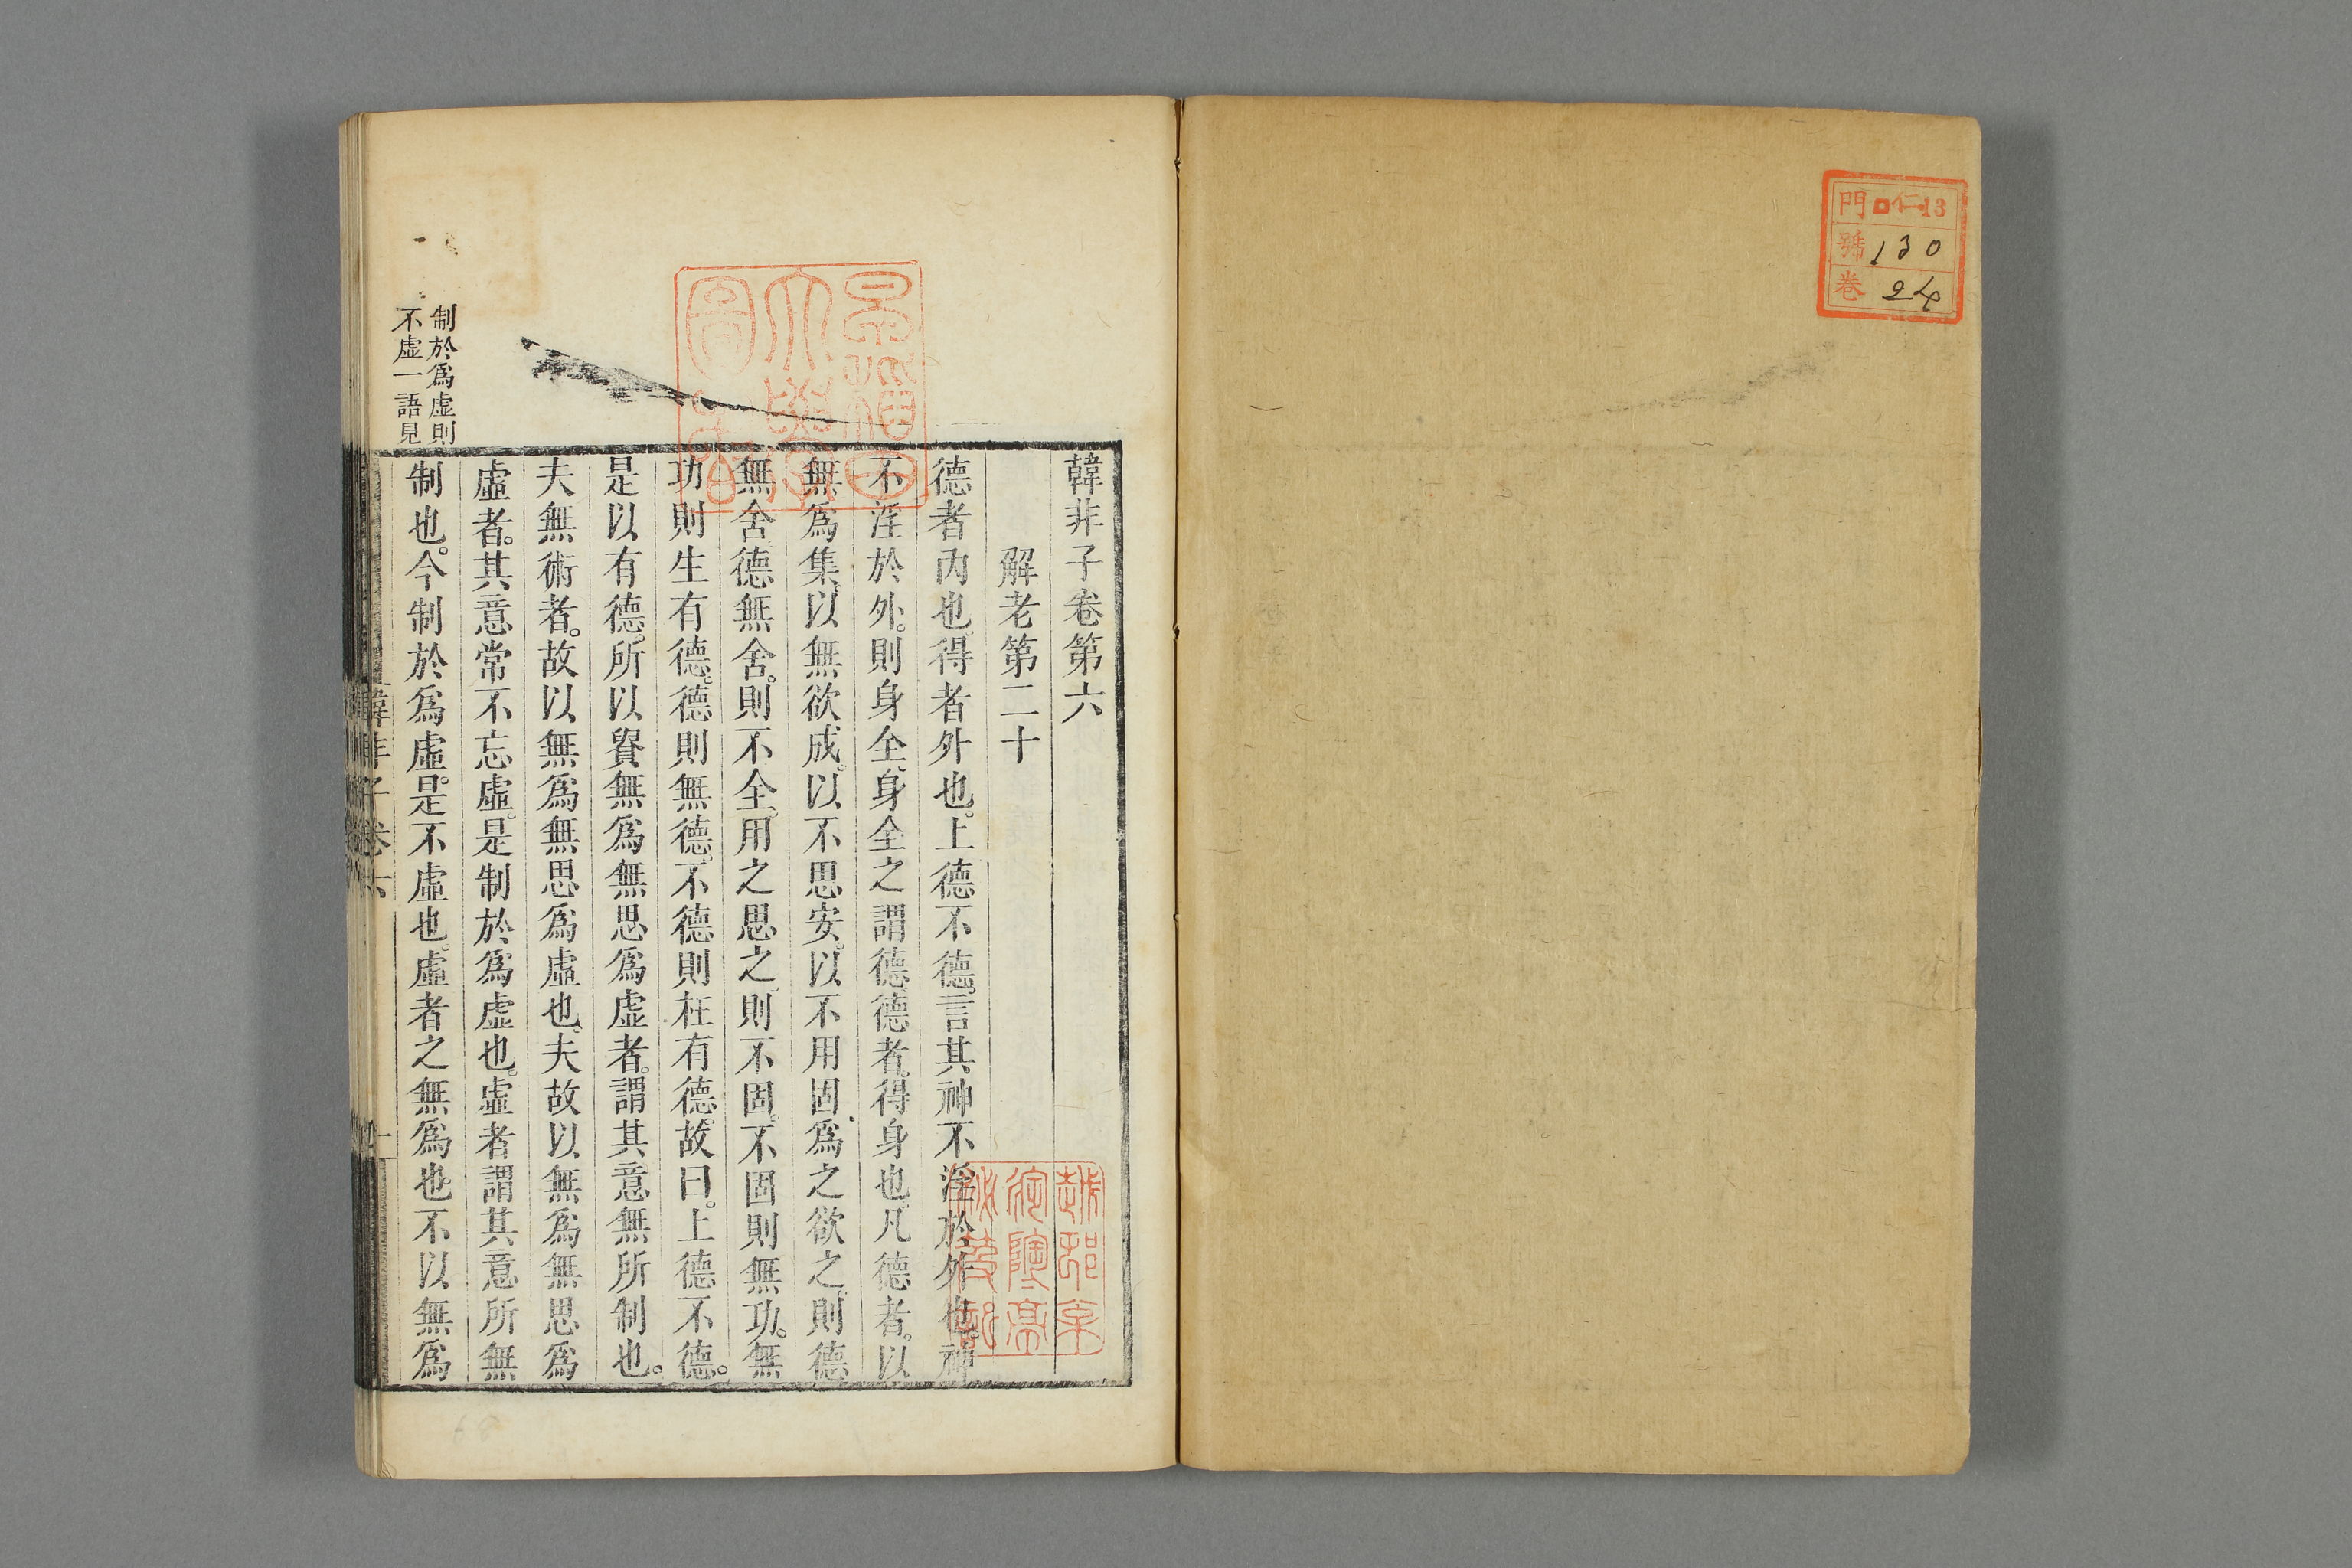 門 仁 13
號 130
卷 24
韓非子卷第六
解老第二十
德者內也得者外也。上德不德。言其神不淫於外也。神
不淫於外。則身全。身全之謂德。德者。得身也。凡德者。以
無爲集。以無欲成。以不思安。以不用固。爲之欲之。則德
無舍。德無舍。則不全。用之思之。則不固。不固則無功。無
功則生有德。德則無德。不德則在有德。故曰。上德不德。
是以有德。所以貴無爲無思爲虛者。謂其意無所制也。
夫無術者。故以無爲無思爲虛也。夫故以無爲無思爲
虛者。其意常不忘虛。是制於爲虛也。虛者謂其意所無
制也。今制於爲虛。是不虛也。虛者之無爲也。不以無爲
制於爲虛則
不虛一語見
韓非子 卷六